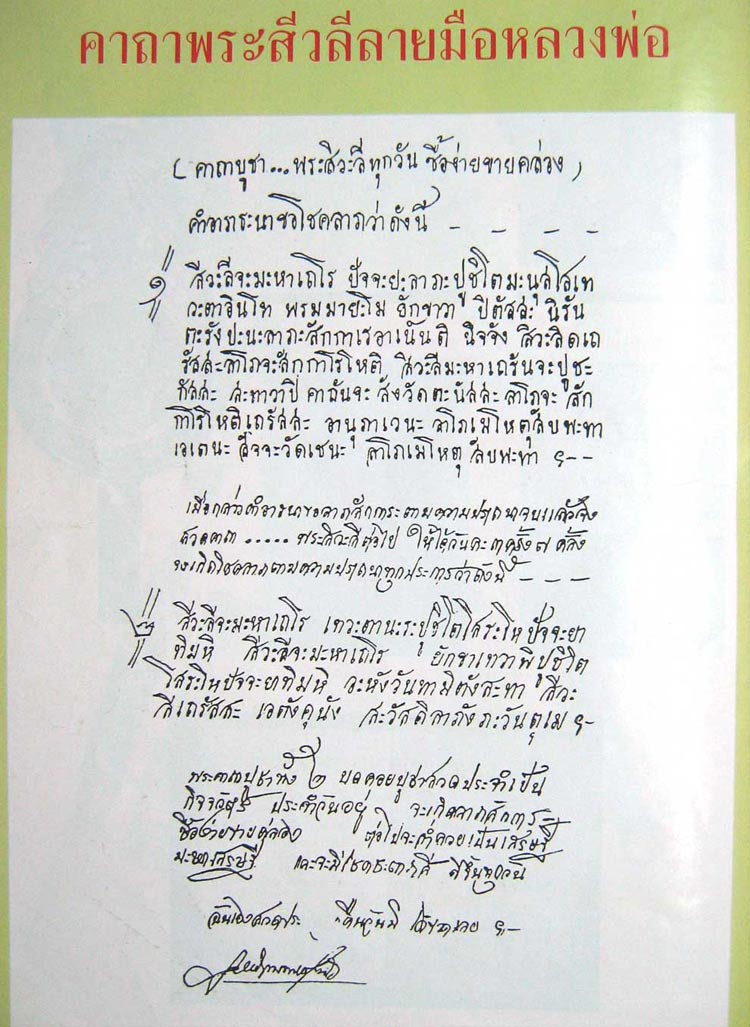 คาถาพระสีวลีลายมือหลวงพ่อ
(คาถาบูชา...พระสิวะลีทุกวัน ซื้อง่ายขายคล่อง)
คำอาภธะนาขอโชคลาภว่าดังนี้ - - - -
๑ สีวะลีจะมะหาเถโร ปัจจะยะลาภะปูชิโตมะนุสโสเท
วะตาอินโท พรมมายะโม ยักขาวา ปิตัสสะ นิรัน
ตะรังปะนะลาภะสักกาเรอาเนันติ นิจจัง สิวะลิดเถ
รัสสะลาโภจะสักกาโรโหติ สิวะลีมะหาเถรันจะปูชะ
กัสสะ สะทาวาปิ คาถันจะ สังวัดตะนัสสะ ลาโภจะ สัก
กาโรโหติเถรัสสะ อานุภาเวนะ ลาโภเมโหตุสับพะทา
เอเตนะ สัจจะวัดเชนะ ลาโภเมโหตุ สับพะทา ฯ--
เมื่อกล่าวคำอาธนาขอลาภสักการะตามความปรารถนาจบแล้วจึง
สวดคาถา ..... พระสิวะลีต่อไป ให้ได้วันละ ๓ ครั้ง ๗ ครั้ง
จะเกิดโชคลาภตามความปรารถนาทุกประการว่าดังนี้ - - -
๒ สีวะลีจะมะหาเถโร เทวะตานะระปูชิโตโสระโหปัจจะยา
ทิมหิ สีวะลีจะมะหาเถโร ยักขาเทวาพิปูชิโต
โสระโหปัจจะยาทิมหิ อะหังวันทามิตังสะทา สีวะ
ลีเถรัสสะ เอตังคุนัง สะวัสดิลาภังภะวันตุเม ฯ-
พระคาถาบูชาทั้ง ๒ บทคอยบูชาสวดประจำเป็น
กิจจวัตร์ ประจำวันอยู่ จะเกิดลาภสักการะ
ซื้อง่ายขายคล่อง ต่อไปจะร่ำรวยเป็นเศรษฐี
มะหาเศรษฐี และจะมีโชคชะตาดี ดีขึ้นทุกวัน